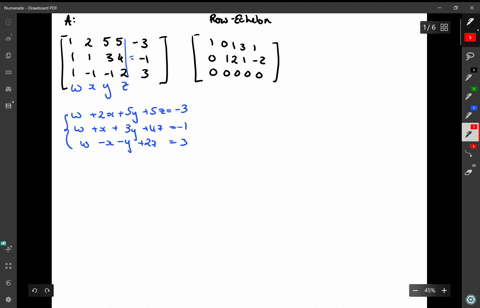 Numerade - Drawboard PDF
A:
Row-Echelon
1 2 5 5 -3
1 1 3 4 = -1
1 -1 -1 2 3
w x y z
1 0 1 3 1
0 1 2 1 -2
0 0 0 0 0
w + 2x + 5y + 5z = -3
w + x + 3y + 4z = -1
w - x - y + 2z = 3
1 / 6
45%